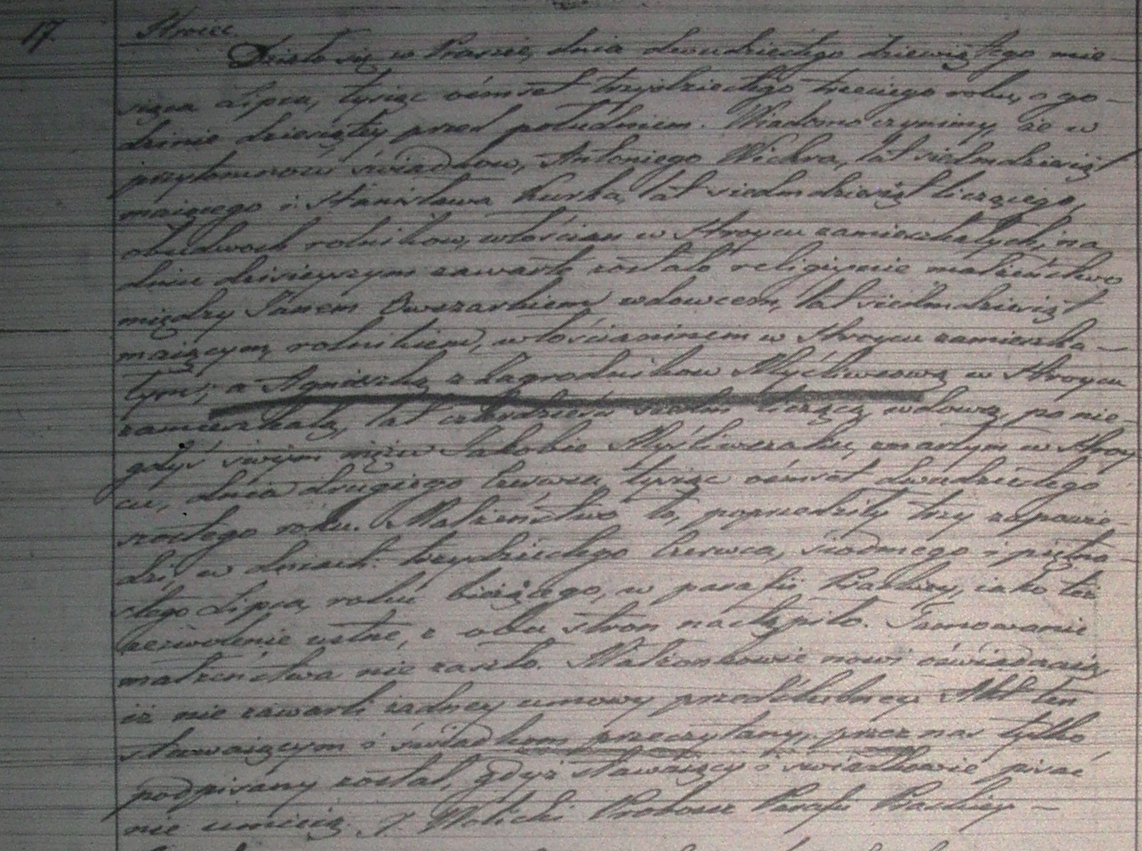 17. Stroiec
Działo się w Prasce, dnia dwudziestego dziewiątego mie-
siąca Lipca, tysiąc ośmset trzydziestego trzeciego roku, o go-
dzinie dziesiątey przed południem. Wiadomo czynimy, że w
przytomności świadków, Antoniego Wichra, lat siedmdziesiąt
maiącego i Stanisława Kurka, lat siedmdziesiąt liczącego,
obudwoch rolników, włościan w Stroycu zamieszkałych, na
dniu dzisieyszym zawarte zostało religiynie małżeństwo
między Janem Owczarkiem, wdowcem, lat siedmdziesiąt
maiącym, rolnikiem, włościaninem w Stroycu zamieszka-
łym; a Agnieszką z Zagrodników Myśliwcową w Stroycu
zamieszkałą, lat czterdzieści siedm liczącą, wdową po nie-
gdyś swym mężu Jakobie Myśliwczaku, zmarłym w Stroy-
cu, dnia drugiego Czerwca, tysiąc ośmset dwudziestego
szóstego roku. Małżeństwo to, poprzedziły trzy zapowie-
dzi, w dniach: trzydziestego Czerwca, siódmego i piętna-
stego Lipca, roku bieżącego, w parafii Praskiey, iako też
zezwolenie ustne, z obu stron nastąpiło. Tamowanie
małżeństwa nie zaszło. Małżonkowie nowi oświadczaią,
iż nie zawarli żadney umowy przedślubney. Akt ten
stawaiącym i świadkom przeczytany, przez nas tylko
podpisany został, gdyż stawaiący i świadkowie pisać
nie umieią. Wolicki Proboszcz Parafii Praskiey